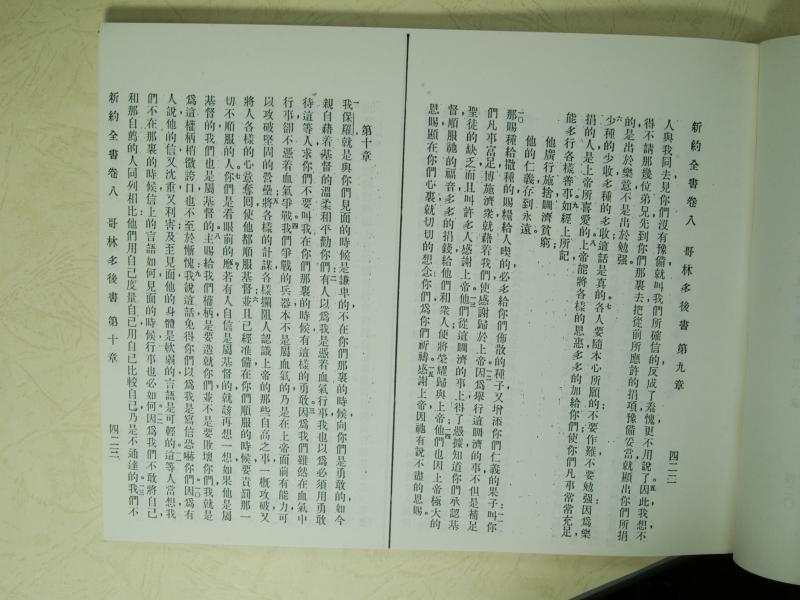 新約全書卷八 哥林多後書 第九章 四二二
人與我同去見你們沒有豫備就叫我們所確信的反成了羞愧更不用說了因此我想不
得不請那幾位弟兄先到你們那裏去把從前所應許的捐項豫備妥當就顯出你們所捐
的是出於樂意不是出於勉强
少種的少收多種的多收這話是真的各人要隨本心所願的不要作難不要勉强因爲樂
捐的人是上帝所喜愛的上帝能將各樣的恩惠多多的加給你們使你們凡事常常充足
能多行各樣善事如經上所記
他廣行施捨賙濟貧窮
他的仁義存到永遠
那賜種給撒種的賜糧給人喫的必多給你們佈散的種子又增添你們仁義的果子叫你
們凡事富足博施濟衆就藉着我們使感謝歸於上帝因爲舉行這賙濟的事不但是補足
聖徒的缺乏而且叫許多人感謝上帝他們從這賙濟的事上得了憑據知道你們承認基
督順服祂的福音多多的捐錢給他們和衆人便將榮耀歸與上帝他們也因上帝極大的
恩賜顯在你們心裏就切切的想念你們爲你們祈禱感謝上帝因祂有說不盡的恩賜
第十章
我保羅就是與你們見面的時候是謙卑的不在你們那裏的時候向你們是勇敢的如今
親自藉着基督的溫柔和平勸你們有人以爲我是憑着血氣行事我也以爲必須用勇敢
待這等人求你們不要叫我在你們那裏的時候有這樣的勇敢因爲我們雖然在血氣中
行事卻不憑着血氣爭戰我們爭戰的兵器本不是屬血氣的乃是在上帝面前有能力可
以攻破堅固的營壘將各樣的計謀各樣攔阻人認識上帝的那些自高之事一概攻破又
將人各樣的心意奪回使他都順服基督並且已經準備在你們順服的時候要責罰那一
切不順服的人你們是看眼前的麽若有人自信是屬基督的就該再想一想如果他是屬
基督的我們也是屬基督的主賜給我們權柄是要造就你們並不是要敗壞你們我就是
爲這權柄稍微誇口也不至於慚愧我說這話免得你們以爲我是寫信恐嚇你們因爲有
人說他的信又沈重又利害及至見面他的身體是軟弱的言語是可輕的這等人當想我
們不在那裏的時候信上的言語如何見面的時候行事也必如何因爲我們不敢將自己
和那自薦的人同列相比他們用自己度量自己用自己比較自己乃是不通達的我們不
新約全書卷八 哥林多後書 第十章 四二三